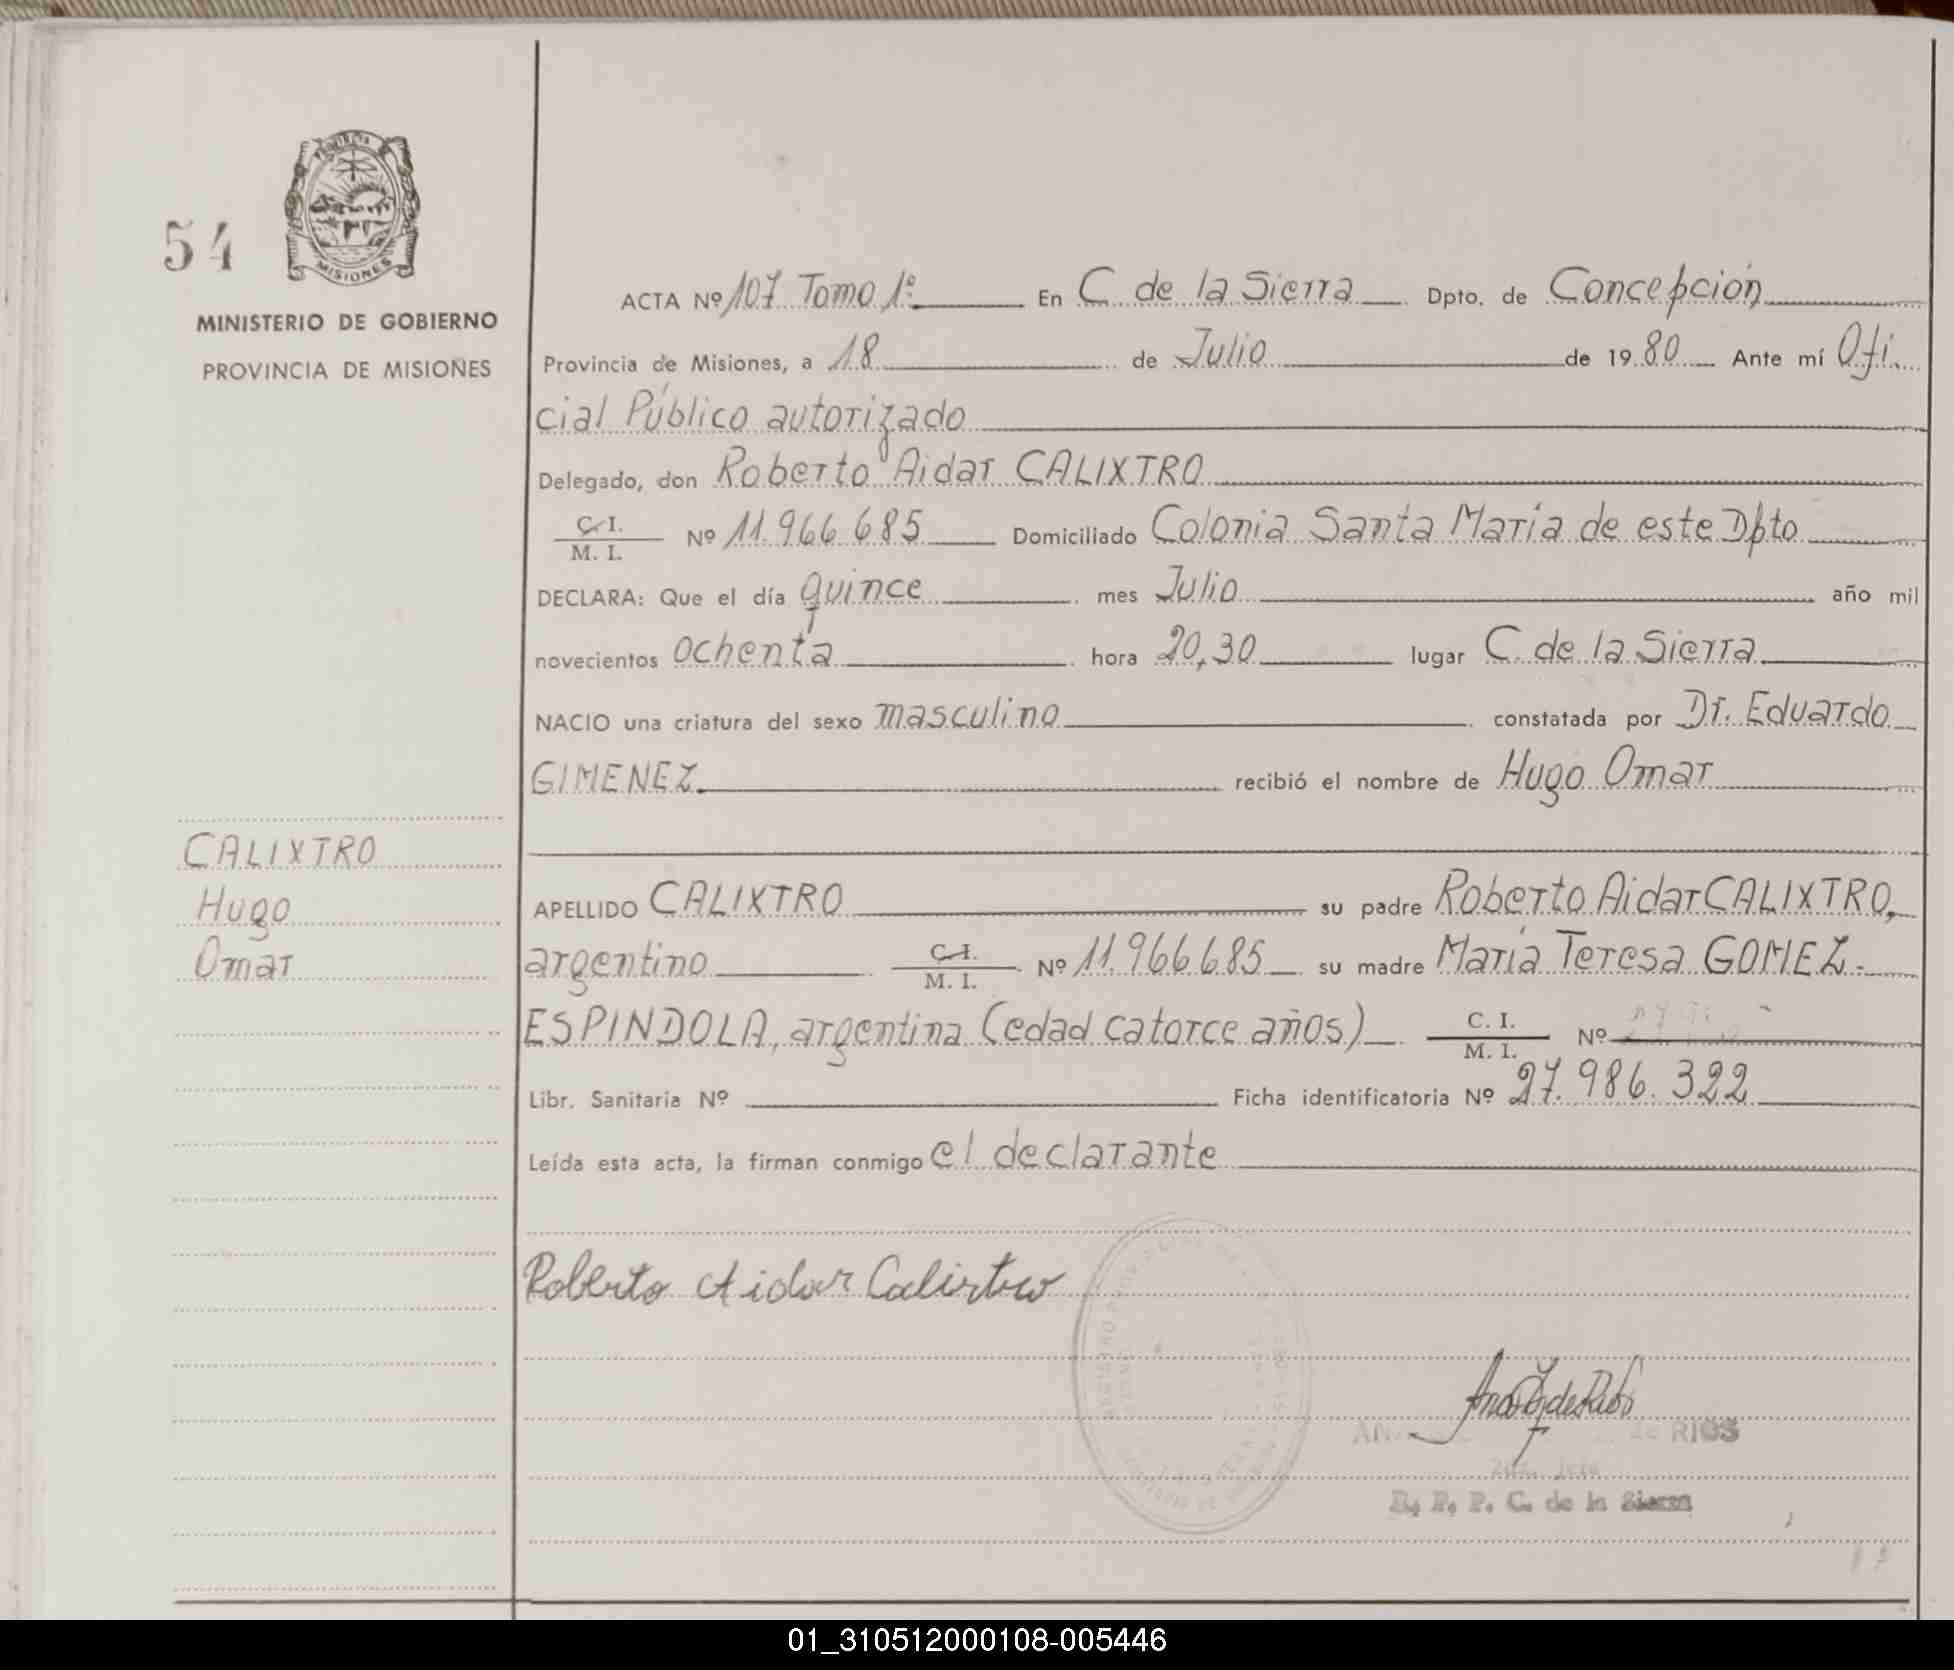 PROVINCIA
MISIONES
54
MINISTERIO DE GOBIERNO
PROVINCIA DE MISIONES
ACTA Nº 107 Tomo 1º En C. de la Sierra Dpto. de Concepción
Provincia de Misiones, a 18 de Julio de 1980 Ante mí Ofi.
cial Público autorizado
Delegado, don Roberto Aidar CALIXTRO
C. I.
M. I. Nº 11.966.685 Domiciliado Colonia Santa María de este Dpto
DECLARA: Que el día quince mes Julio año mil
novecientos ochenta hora 20,30 lugar C. de la Sierra
NACIO una criatura del sexo masculino constatada por Dr. Eduardo
GIMENEZ recibió el nombre de Hugo Omar
CALIXTRO
Hugo
Omar
APELLIDO CALIXTRO su padre Roberto Aidar CALIXTRO,
argentino C. I.
M. I. Nº 11.966.685 su madre María Teresa GOMEZ.
ESPINDOLA, argentina (edad catorce años) C. I.
M. I. Nº
Libr. Sanitaria Nº Ficha identificatoria Nº 27.986.322
Leída esta acta, la firman conmigo el declarante
Roberto Aidar Calixtro
de RIOS
C. de la Sierra
01_310512000108-005446